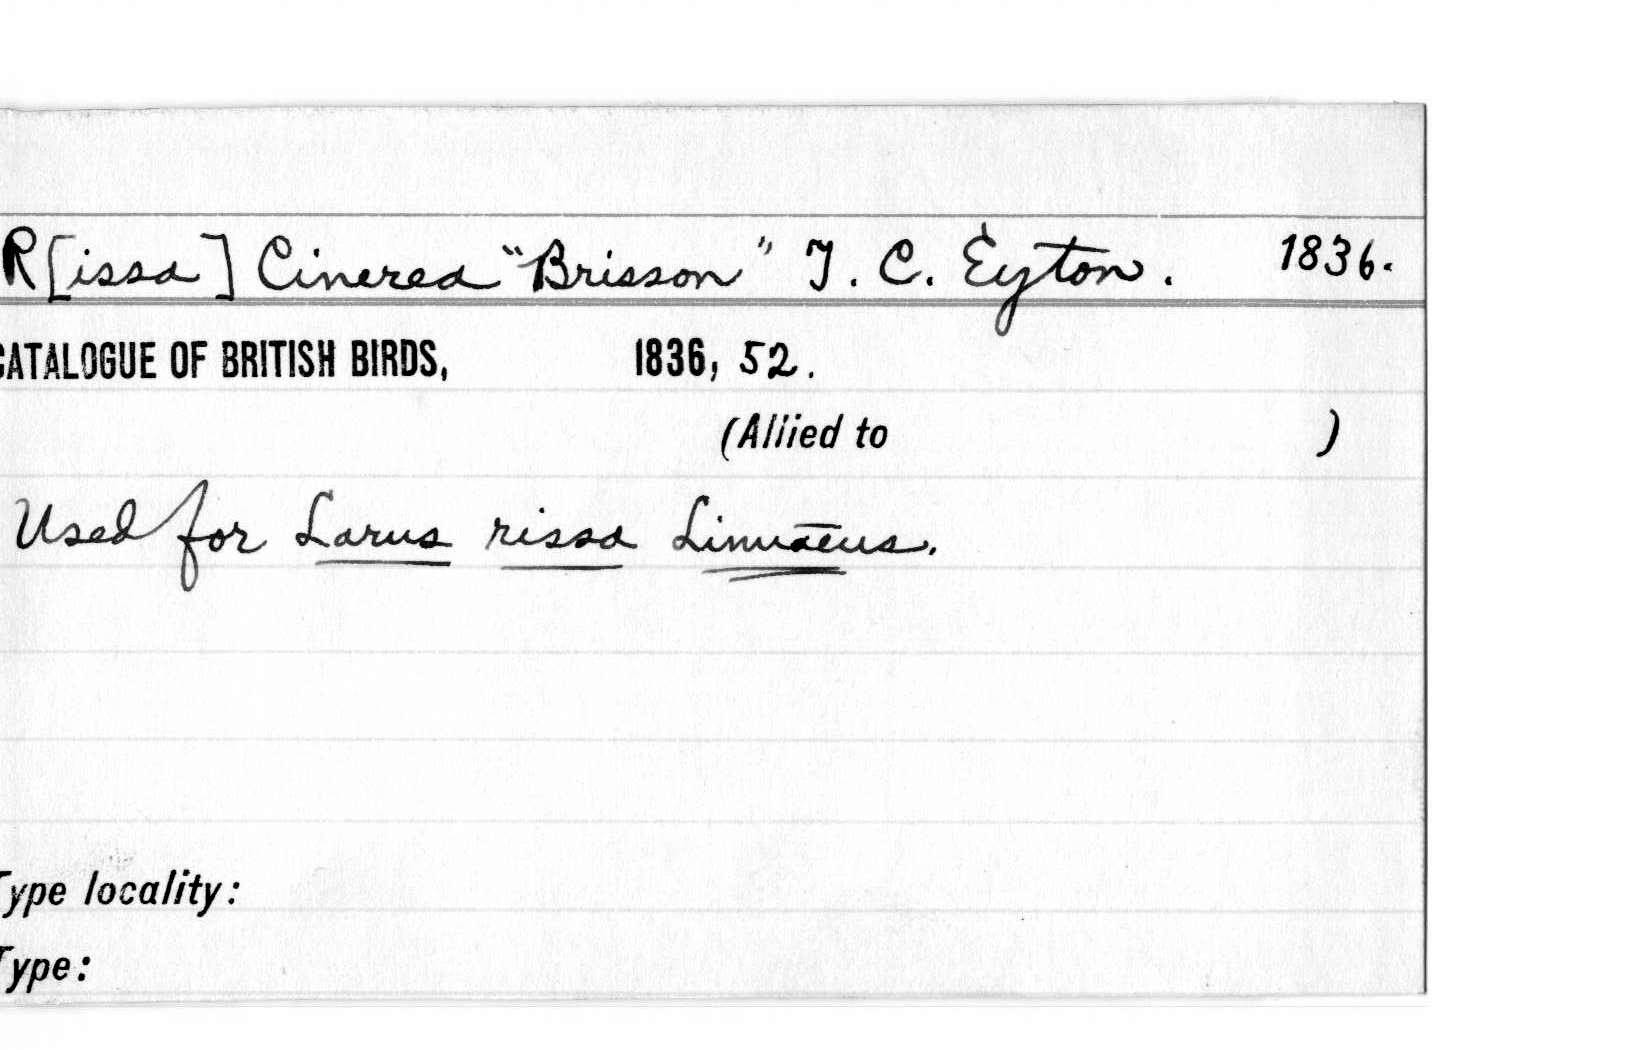 R[issa] Cinerea "Brisson" T. C. Eyton. 1836.
CATALOGUE OF BRITISH BIRDS, 1836, 52.
(Allied to )
Used for Larus rissa Linnaeus.
Type locality:
Type: